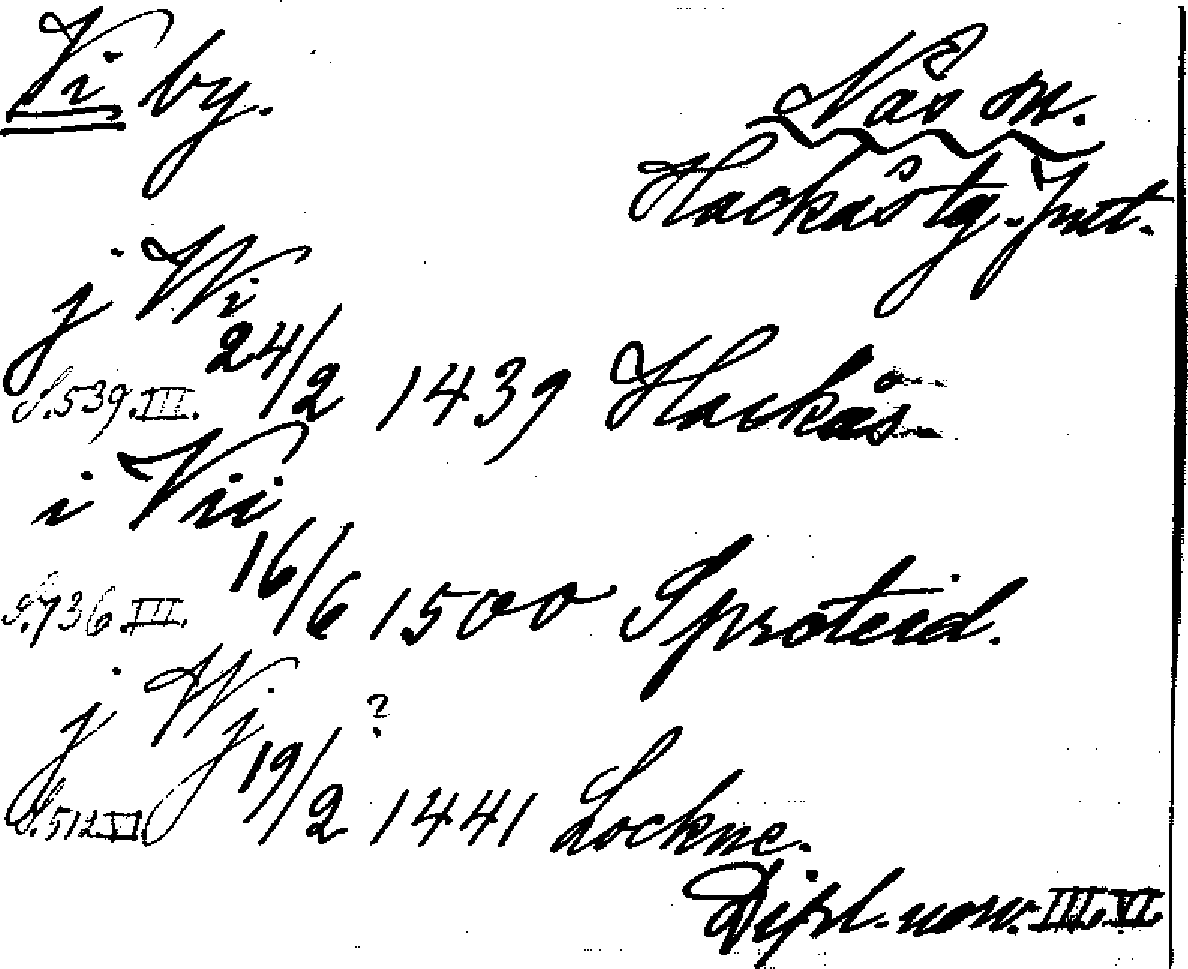 Vi by.
Näs sn.
Hackås tg. Jmt.
j Wi
24/2 1439 Hackås
S. 539. III.
i Vii
16/6 1500 Sproteid.
S. 736 III.
j Wj
?
19/2 1441 Lockne.
S. 512 VI
Dipl. norv. III. VI.